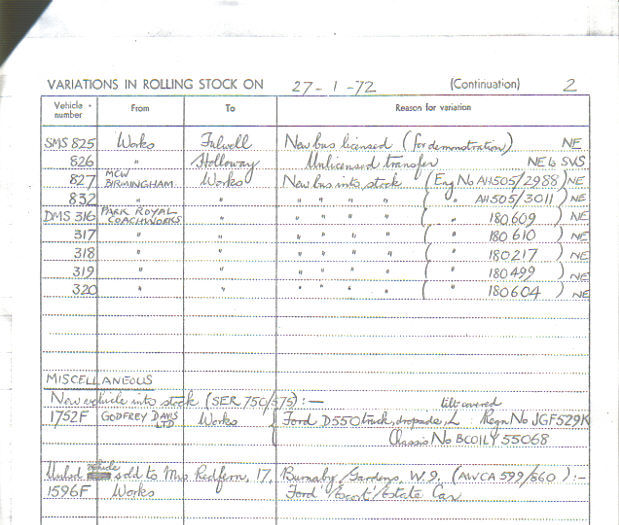 VARIATIONS IN ROLLING STOCK ON 27-1-72 (Continuation) 2
Vehicle number From To Reason for variation
SMS 825 Works Fulwell New bus licensed (for demonstration) NE
826 " Holloway Unlicensed transfer NE to SVS
827 MCW BIRMINGHAM Works New bus into stock (Eng No AH505/2988) NE
832 " " " " " " ( " AH505/3011) NE
DMS 316 PARK ROYAL COACHWORKS " " " " " ( " 180609) NE
317 " " " " " " ( " 180610) NE
318 " " " " " " ( " 180217) NE
319 " " " " " " ( " 180499) NE
320 " " " " " " ( " 180604) NE
MISCELLANEOUS
New vehicle into stock (SER 750/575):—
1752F GODFREY DAVIS LTD Works Ford D550 truck, dropside, L tilt covered Regn. No JGF529K
Chassis No BCOILY 55068
vehicle sold to Mrs Redfern, 17, Burnaby Gardens, W.9, (AWCA 599/560):-
1596F Works Ford 'Escort' Estate Car